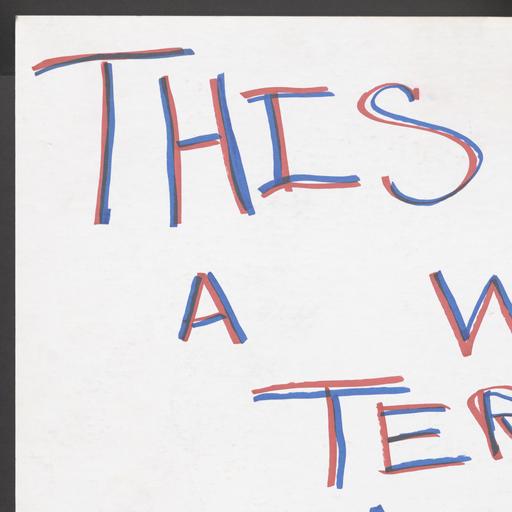 THIS
A W
TER